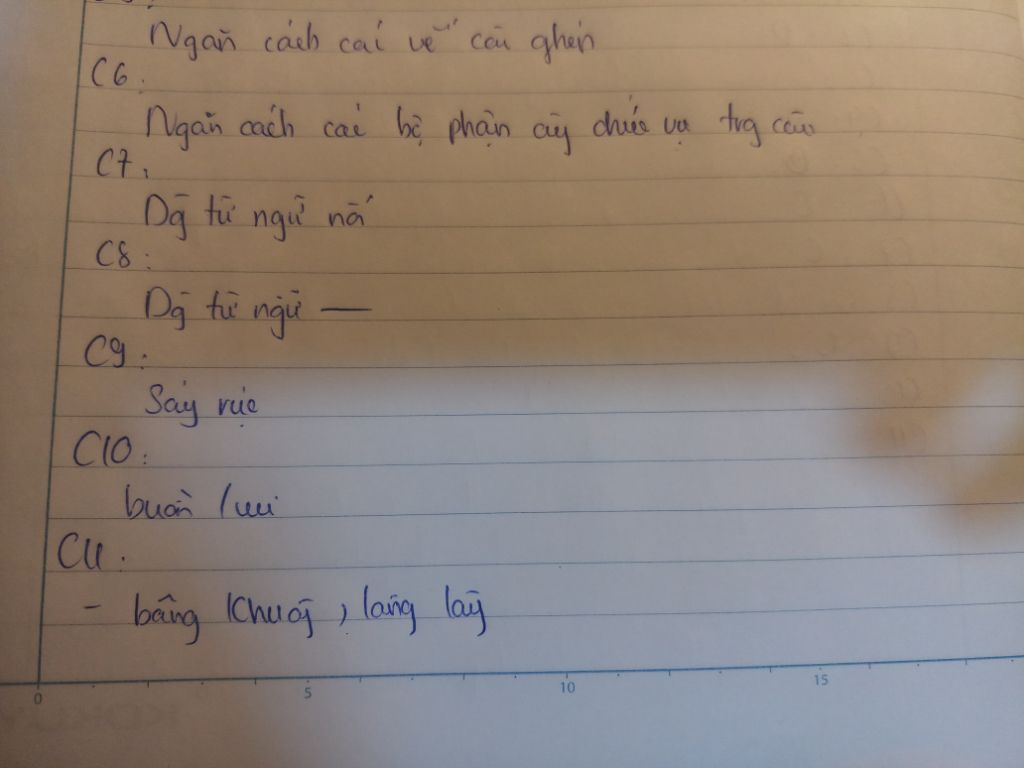 Ngăn cách các vế câu ghép
C6:
Ngăn cách các bộ phận cùng chức vụ trg câu
C7:
Dùng từ ngữ nối
C8:
Dùng từ ngữ —
C9:
Sáng rực
C10:
buồn / vui
C11.
- bâng khuâng, lặng lẽ
0 5 10 15